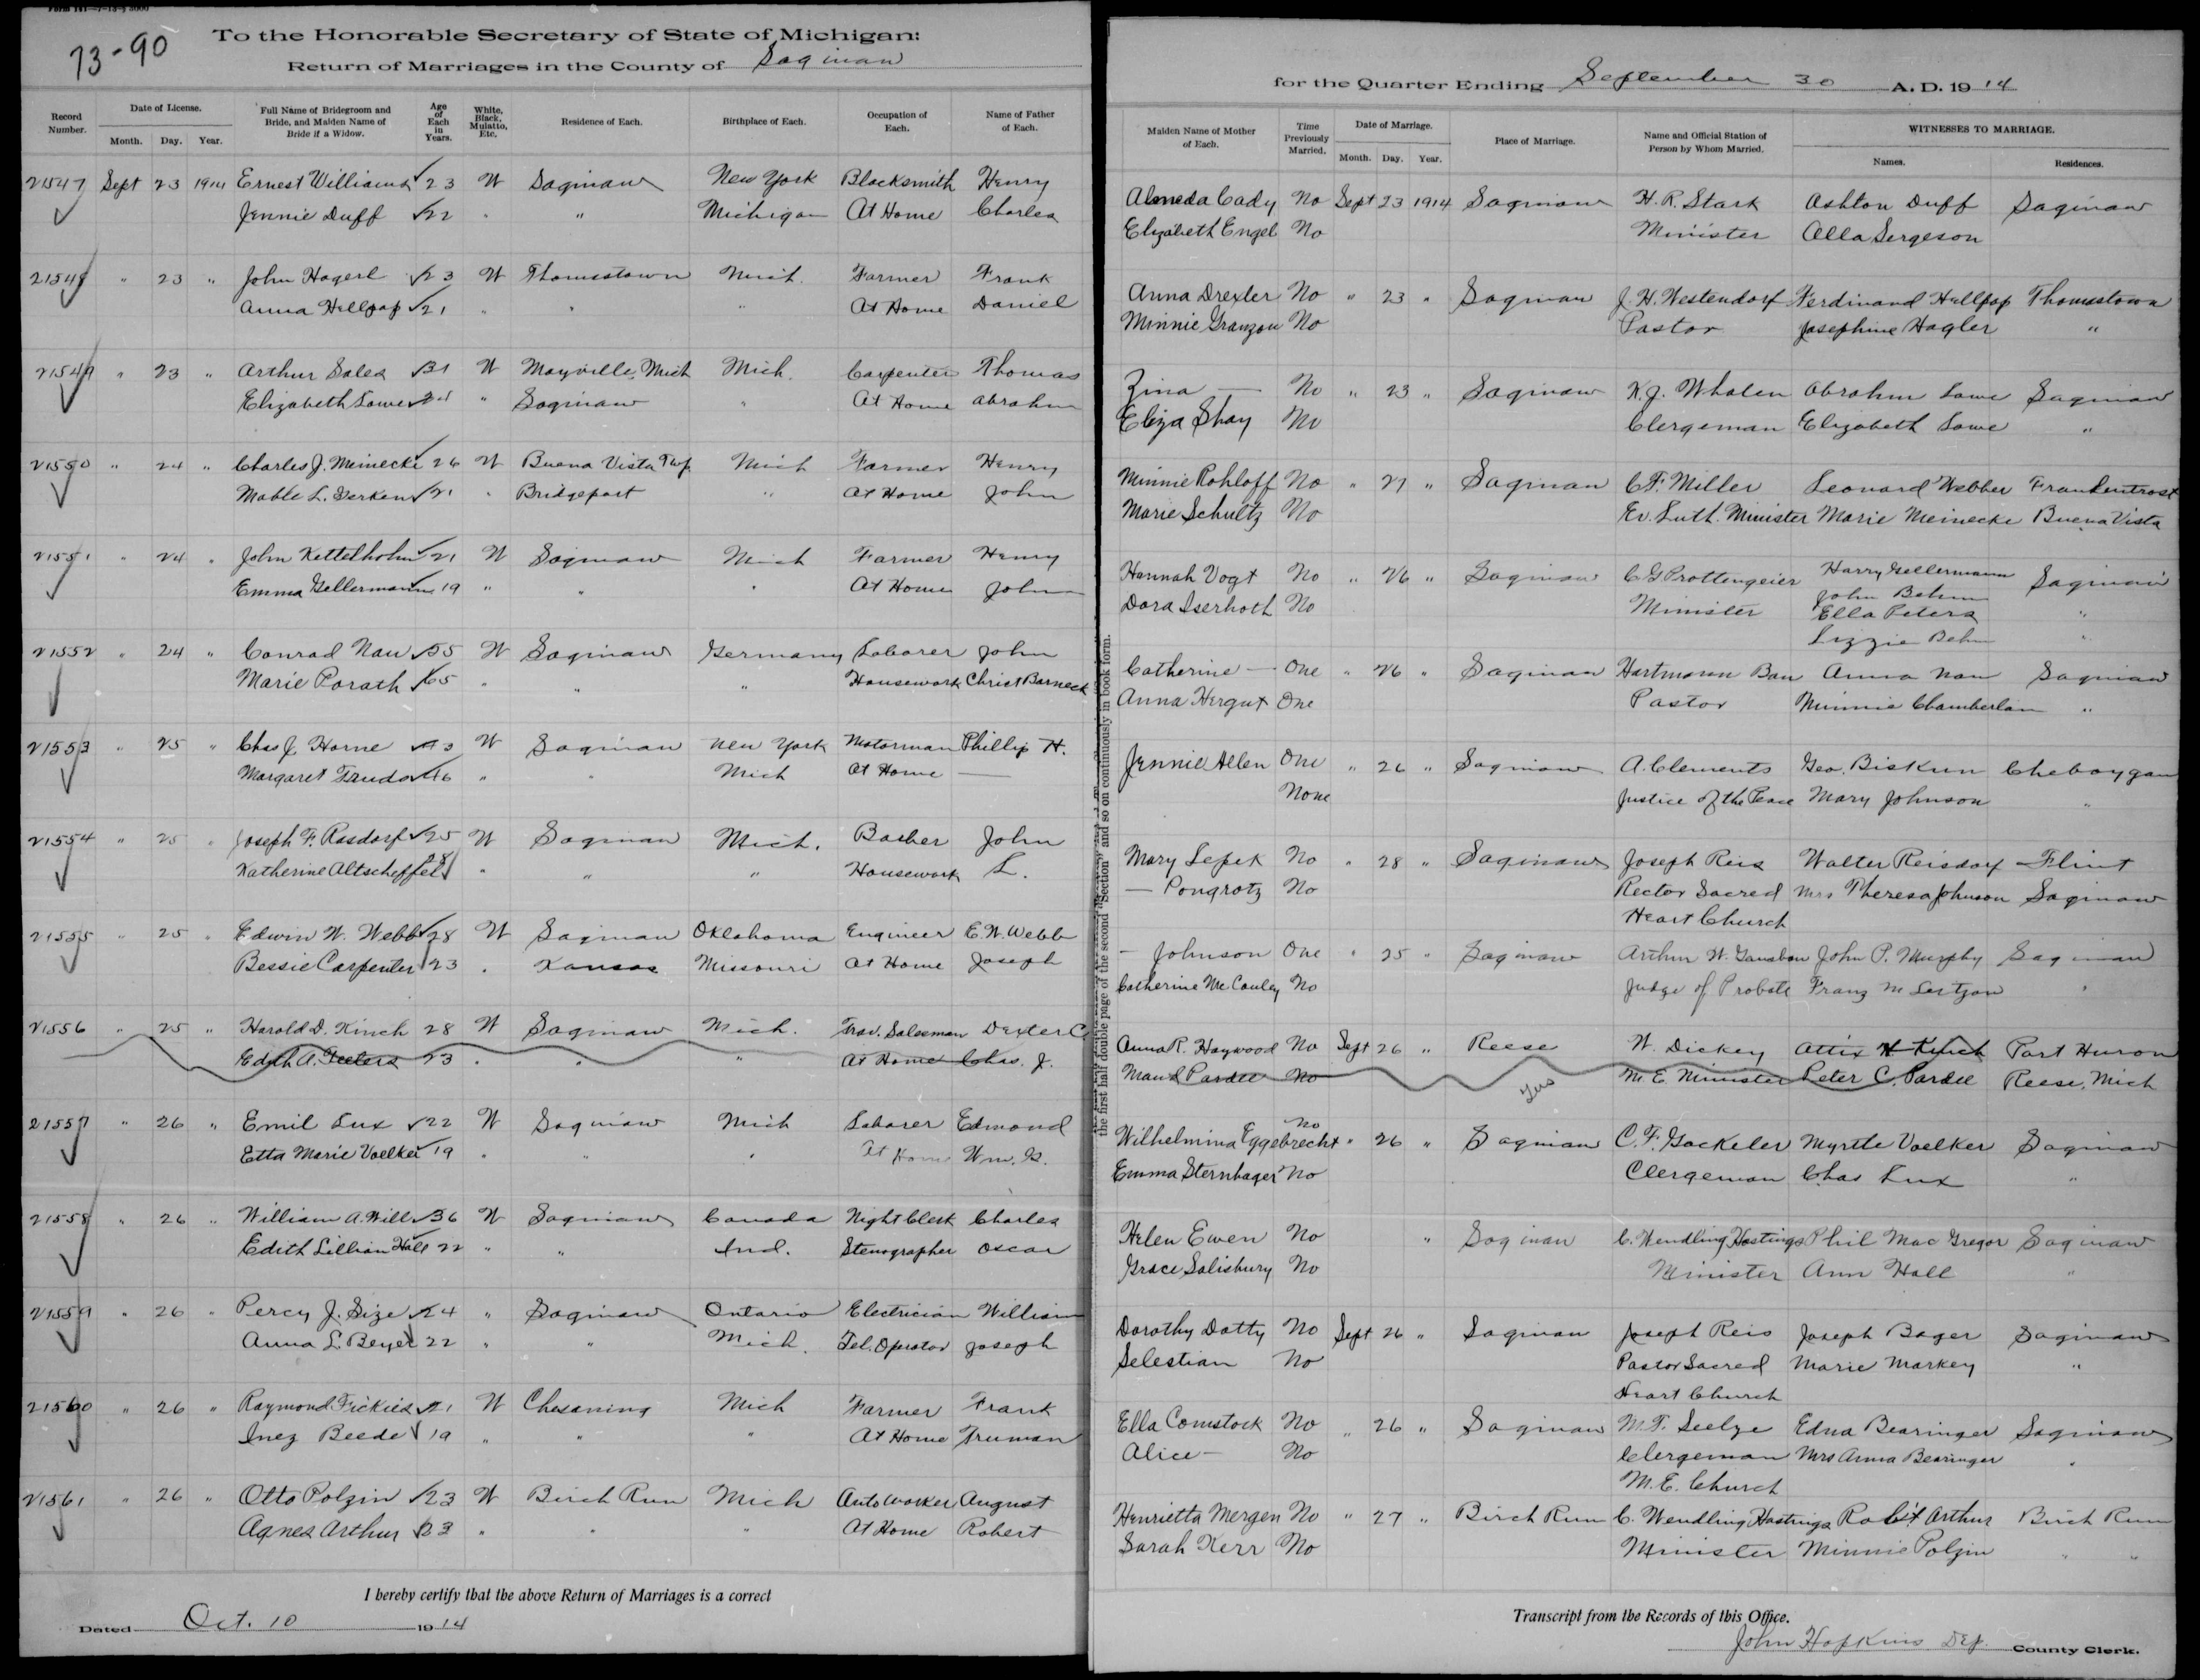 73-90
To the Honorable Secretary of State of Michigan:
Return of Marriages in the County of Saginaw
Record Number. Date of License. Month. Day. Year. Full Name of Bridegroom and Bride, and Maiden Name of Bride if a Widow. Age of Each in Years. White, Black, Mulatto, Etc. Residence of Each. Birthplace of Each. Occupation of Each. Name of Father of Each.
21547 Sept 23 1914 Ernest Williams 23 W Saginaw New York Blacksmith Henry
Jennie Duff 22 " " Michigan At Home Charles
21548 " 23 " John Hagerl 23 W Thomastown Mich. Farmer Frank
Anna Hellpap 21 " " " At Home Daniel
21549 " 23 " Arthur Sales 31 W Mayville Mich Mich. Carpenter Thomas
Elizabeth Lowe " Saginaw " At Home Abraham
21550 " 24 " Charles J. Meinecke 26 W Buena Vista Twp Mich Farmer Henry
Mable L. Gerken 21 " Bridgeport " At Home John
21551 " 24 " John Kettelhohn 21 W Saginaw Mich Farmer Henry
Emma Gellermann 19 " " " At Home John
21552 " 24 " Conrad Nau 55 W Saginaw Germany Laborer John
Marie Porath 65 " " " Housework Christ Barneck
21553 " 25 " Chas J. Horne W Saginaw New York Motorman Phillip H.
Margaret 46 " " Mich At Home —
21554 " 25 " Joseph F. Rasdorf 25 W Saginaw Mich. Barber John
Katherine Altscheffel 28 " " " Housework L.
21555 " 25 " Edwin W. Webb 28 W Saginaw Oklahoma Engineer E. W. Webb
Bessie Carpenter 23 " Kansas Missouri At Home Joseph
21556 " 25 " Harold D. Kinch 28 W Saginaw Mich. Trav. Salesman Dexter C.
Edith A. 23 " " " At Home Chas. J.
21557 " 26 " Emil Lux 22 W Saginaw Mich Laborer Edmond
Etta Marie Voelker 19 " " " At Home Wm. G.
21558 " 26 " William A. Will 36 W Saginaw Canada Night Clerk Charles
Edith Lillian Hall 22 " " Ind. Stenographer Oscar
21559 " 26 " Percy J. Size 24 " Saginaw Ontario Electrician William
Anna L. Beyer 22 " " Mich. Tel. Operator Joseph
21560 " 26 " Raymond Fickies 21 W Chesaning Mich Farmer Frank
Inez Beede 19 " " " At Home Truman
21561 " 26 " Otto Polzin 23 W Birch Run Mich Auto Worker August
Agnes Arthur 23 " " " At Home Robert
I hereby certify that the above Return of Marriages is a correct
Dated Oct. 10 1914
the first half double page of the second "Section" and so on continuously in book form.
for the Quarter Ending September 30 A. D. 1914
Maiden Name of Mother of Each. Time Previously Married. Date of Marriage. Month. Day. Year. Place of Marriage. Name and Official Station of Person by Whom Married. WITNESSES TO MARRIAGE. Names. Residences.
Almeda Cady No Sept 23 1914 Saginaw H. R. Stark Ashton Duff Saginaw
Elizabeth Engel No Minister Alla Sergeson
Anna Drexler No " 23 " Saginaw J. H. Westendorf Ferdinand Hellpap Thomastown
Minnie Granzou No Pastor Josephine Hagler "
Zina — No " 23 " Saginaw K. J. Whalen Abrahm Lowe Saginaw
Eliza Shay No Clergeman Elizabeth Lowe "
Minnie Rohloff No " 27 " Saginaw C. F. Miller Leonard Webber Frankentrost
Marie Schultz No Ev. Luth. Minister Marie Meinecke Buena Vista
Hannah Vogt No " 26 " Saginaw C G Prottengeier Harry Gellermann Saginaw
John Behm
Dora Iserhoth No Minister Ella Peters "
Lizzie Behm "
Catherine — One " 26 " Saginaw Hartmann Bau Anna Nau Saginaw
Anna Hergut One Pastor Minnie Chamberlain "
Jennie Allen One " 26 " Saginaw A. Clements Geo. Biskun Cheboygan
None Justice of the Peace Mary Johnson "
Mary Lepek No " 28 " Saginaw Joseph Reis Walter Reisdorf Flint
— Pongratz No Rector Sacred Mrs Theresa Johnson Saginaw
Heart Church
— Johnson One " 25 " Saginaw Arthur W. John P. Murphy Saginaw
Catherine McCauley No Judge of Probate Franz M "
Anna R. Haywood No Sept 26 " Reese W. Dickey Attix H Kinch Port Huron
Maud Pardee No Tus M. E. Minister Peter C. Pardee Reese, Mich
Wilhelmina Eggebrecht No " 26 " Saginaw C. F. Gackeler Myrtle Voelker Saginaw
Emma Sternhager No Clergeman Chas Lux "
Helen Ewen No " Saginaw C. Wendling Hastings Phil Mac Gregor Saginaw
Grace Salisbury No Minister Ann Hall "
Dorothy Datty No Sept 26 " Saginaw Joseph Reis Joseph Bager Saginaw
Selestian No Pastor Sacred Marie Markey "
Heart Church
Ella Comstock No " 26 " Saginaw M. F. Seelye Edna Bearinger Saginaw
Alice — No Clergeman Mrs Anna Bearinger "
M. E. Church
Henrietta Mergen No " 27 " Birch Run C. Wendling Hastings Rob't Arthur Birch Run
Sarah Kerr No Minister Minnie Polzin " "
Transcript from the Records of this Office.
John Hopkins Dep. County Clerk.